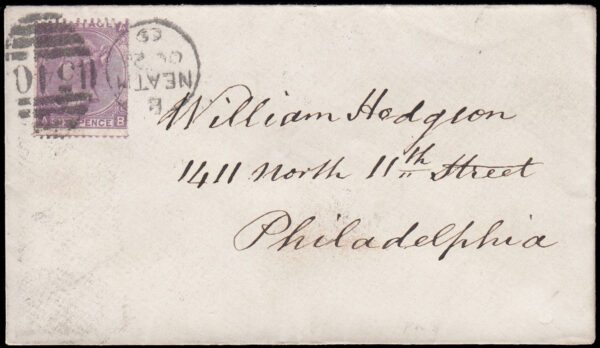 540
NEATH
B
A PENCE B
William Hodgson
1411 North 11th Street
Philadelphia